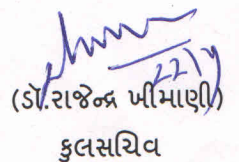 22/4
(ડૉ.રાજેન્દ્ર ખીમાણી)
કુલસચિવ